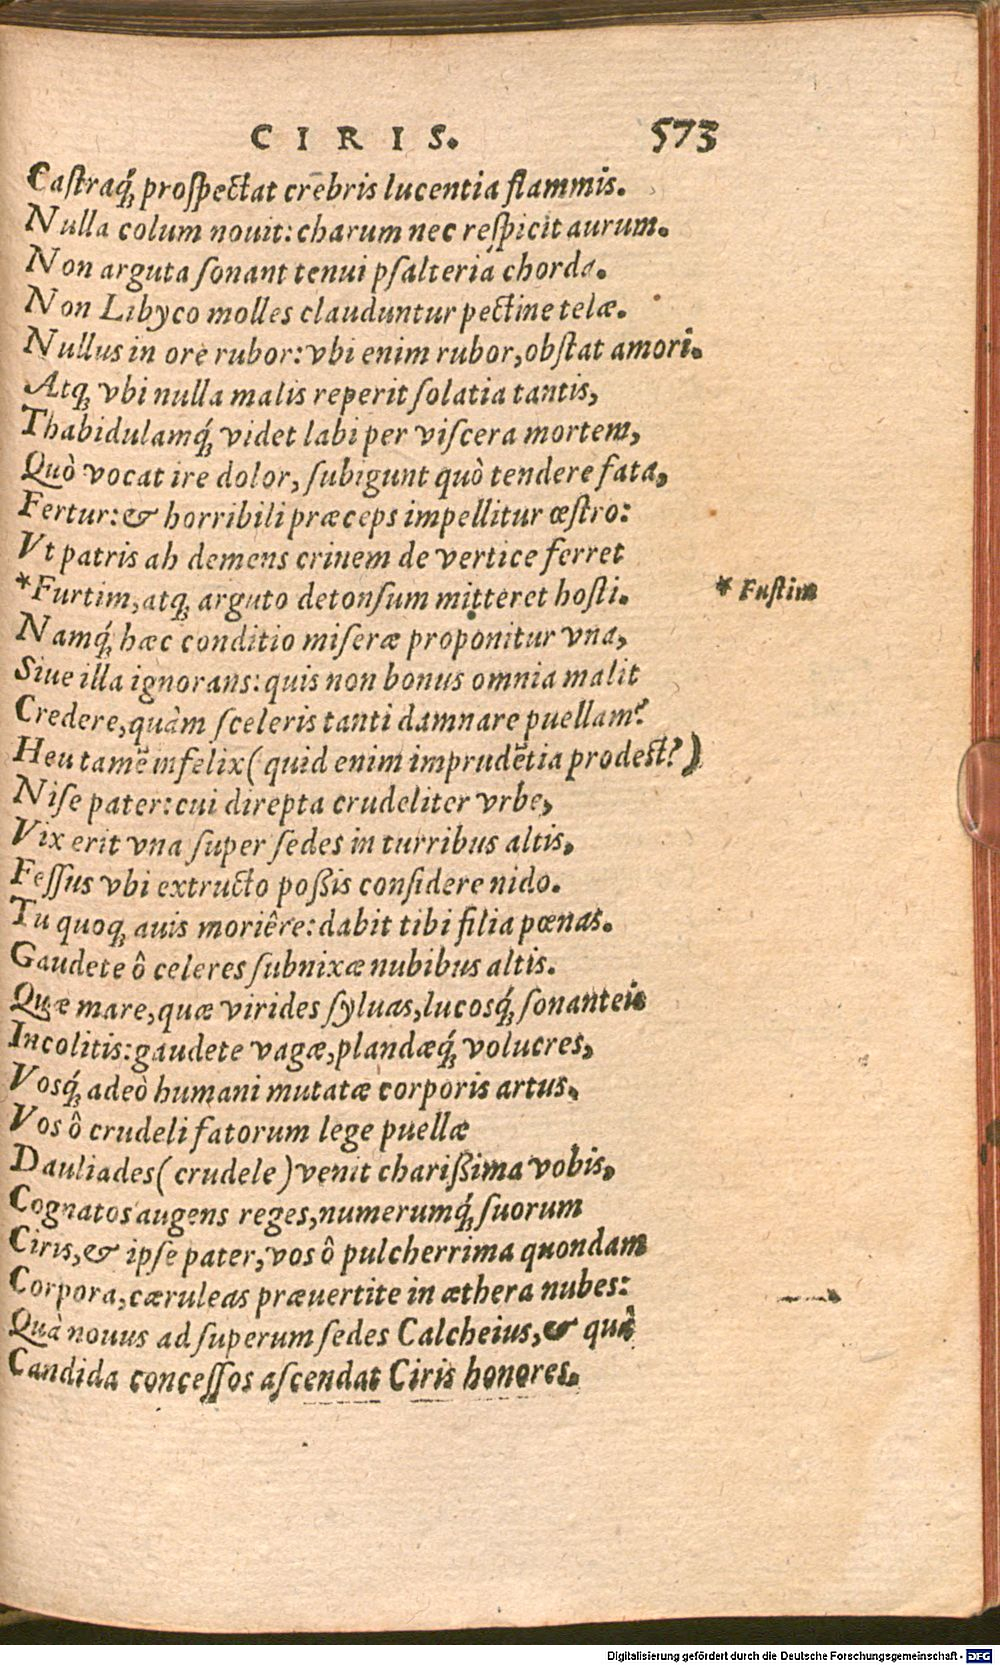 CIRIS. 573
Castraq́; prospectat crebris lucentia flammis.
Nulla colum nouit: charum nec respicit aurum.
Non arguta sonant tenui psalteria chorda.
Non Libyco molles clauduntur pectine telæ.
Nullus in ore rubor: vbi enim rubor, obstat amori.
Atq; vbi nulla malis reperit solatia tantis,
Thabidulamq́; videt labi per viscera mortem,
Quò vocat ire dolor, subigunt quò tendere fata,
Fertur: & horribili præceps impellitur œstro:
Vt patris ah demens crinem de vertice ferret
*Furtim, atq; arguto detonsum mitteret hosti.
* Fustim
Namq́; hæc conditio miseræ proponitur vna,
Siue illa ignorans: quis non bonus omnia malit
Credere, quàm sceleris tanti damnare puellam?
Heu tamē infelix (quid enim imprudētia prodest?)
Nise pater: cui direpta crudeliter vrbe,
Vix erit vna super sedes in turribus altis,
Fessus vbi extructo poßis considere nido.
Tu quoq; auis moriêre: dabit tibi filia pœnas.
Gaudete ô celeres subnixæ nubibus altis.
Quæ mare, quæ virides syluas, lucosq́; sonanteis
Incolitis: gaudete vagæ, plandæq́; volucres,
Vosq́; adeò humani mutatæ corporis artus.
Vos ô crudeli fatorum lege puellæ
Dauliades (crudele) venit charißima vobis,
Cognatos augens reges, numerumq́; suorum
Ciris, & ipse pater, vos ô pulcherrima quondam
Corpora, cæruleas præuertite in æthera nubes:
Quà nouus ad superum sedes Calcheius, & quâ
Candida concessos ascendat Ciris honores.
Digitalisierung gefördert durch die Deutsche Forschungsgemeinschaft - DFG